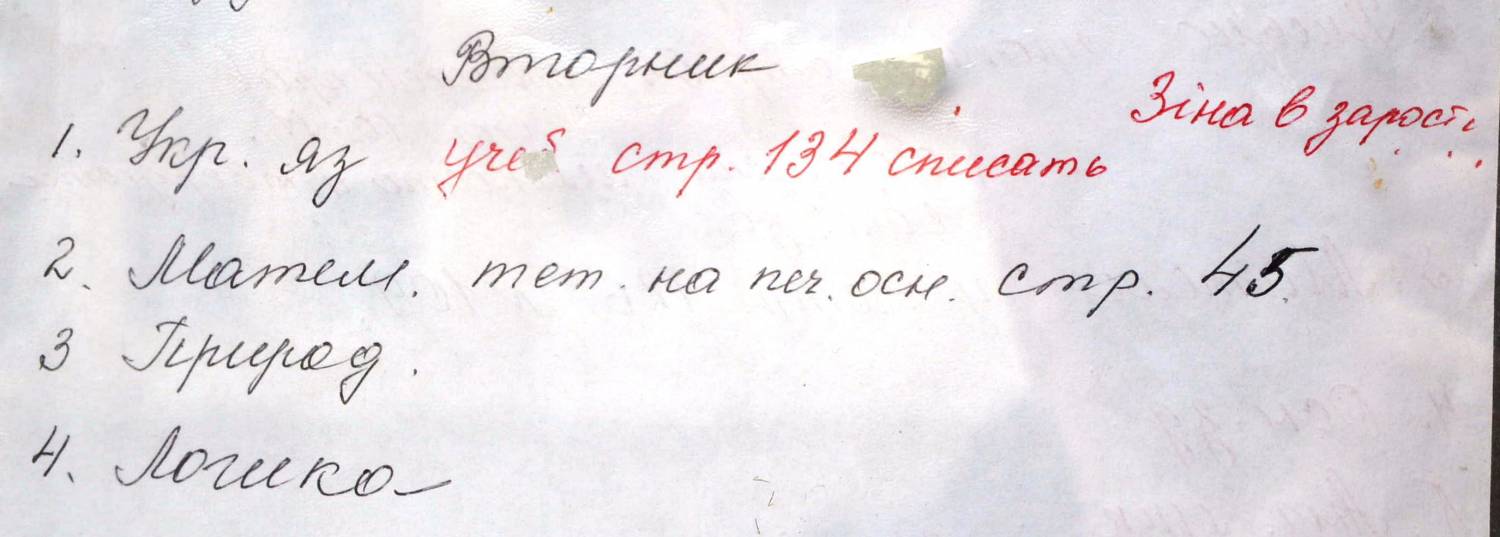 Вторник
Зіна в зарості
1. Укр. яз учеб стр. 134 списать
2. Матем. тет. на печ. осн. стр. 45.
3 Природ.
4. Логика